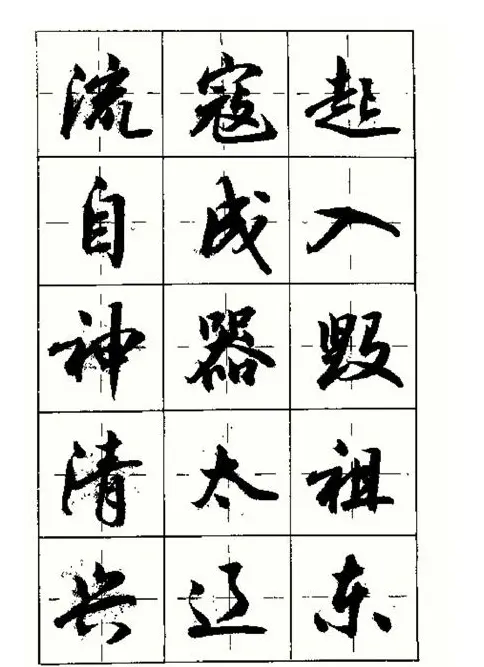 流寇起
自成入
神器毁
清太祖
兴辽东